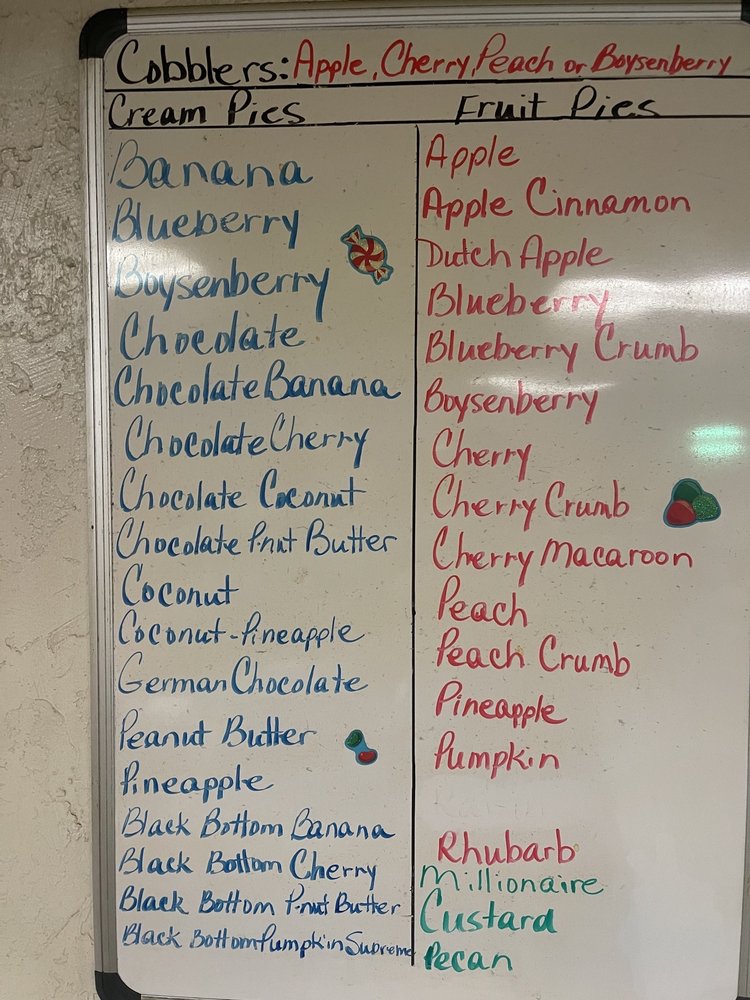 Cobblers: Apple, Cherry, Peach or Boysenberry
Cream Pies
Banana
Blueberry
Boysenberry
Chocolate
Chocolate Banana
Chocolate Cherry
Chocolate Coconut
Chocolate P.nut Butter
Coconut
Coconut-Pineapple
German Chocolate
Peanut Butter
Pineapple
Black Bottom Banana
Black Bottom Cherry
Black Bottom P.nut Butter
Black Bottom Pumpkin Supreme
Fruit Pies
Apple
Apple Cinnamon
Dutch Apple
Blueberry
Blueberry Crumb
Boysenberry
Cherry
Cherry Crumb
Cherry Macaroon
Peach
Peach Crumb
Pineapple
Pumpkin
Rhubarb
Millionaire
Custard
Pecan